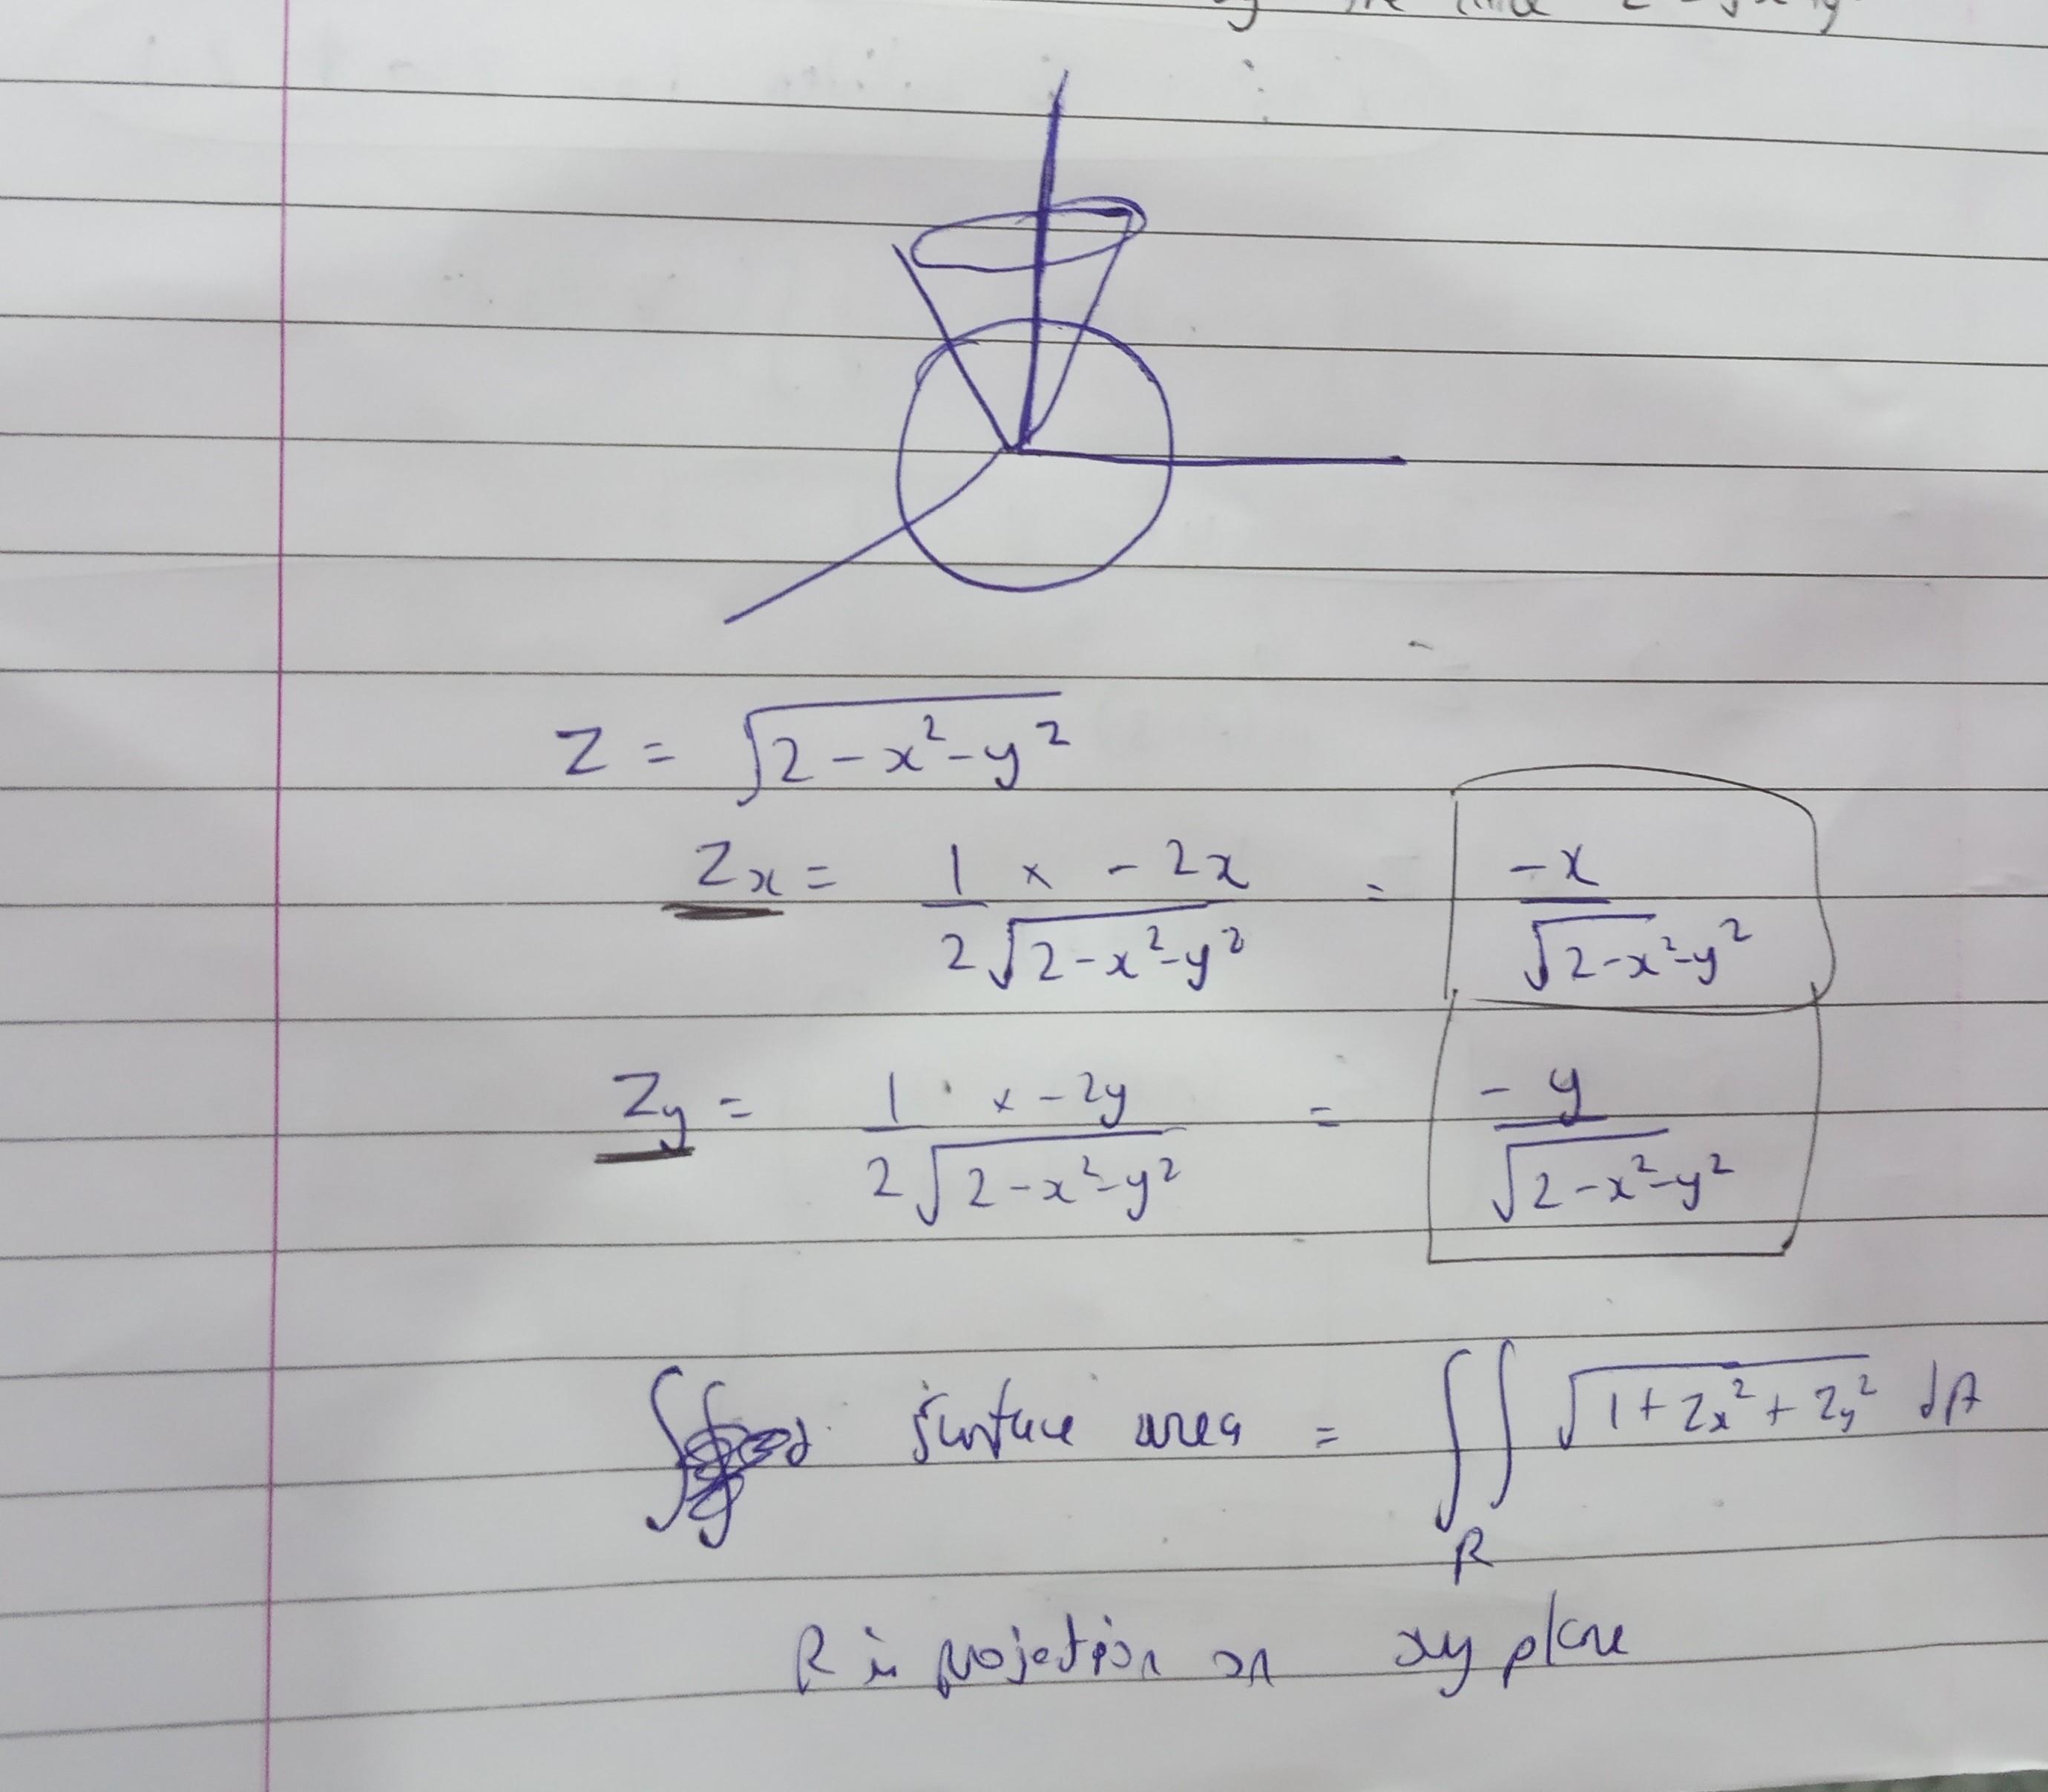 z = √(2-x²-y²)
Zx = 1/(2√(2-x²-y²)) × -2x = -x/√(2-x²-y²)
Zy = 1/(2√(2-x²-y²)) × -2y = -y/√(2-x²-y²)
surface area = ∬_R √(1+Zx²+Zy²) dA
R is projection on xy plane